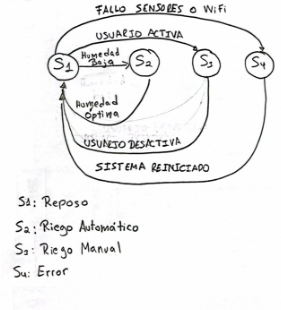 FALLO SENSORES o WiFi
USUARIO ACTIVA
Humedad
Baja
S1
S2
S3
S4
Humedad
Optima
USUARIO DESACTIVA
SISTEMA REINICIADO
S1: Reposo
S2: Riego Automático
S3: Riego Manual
S4: Error